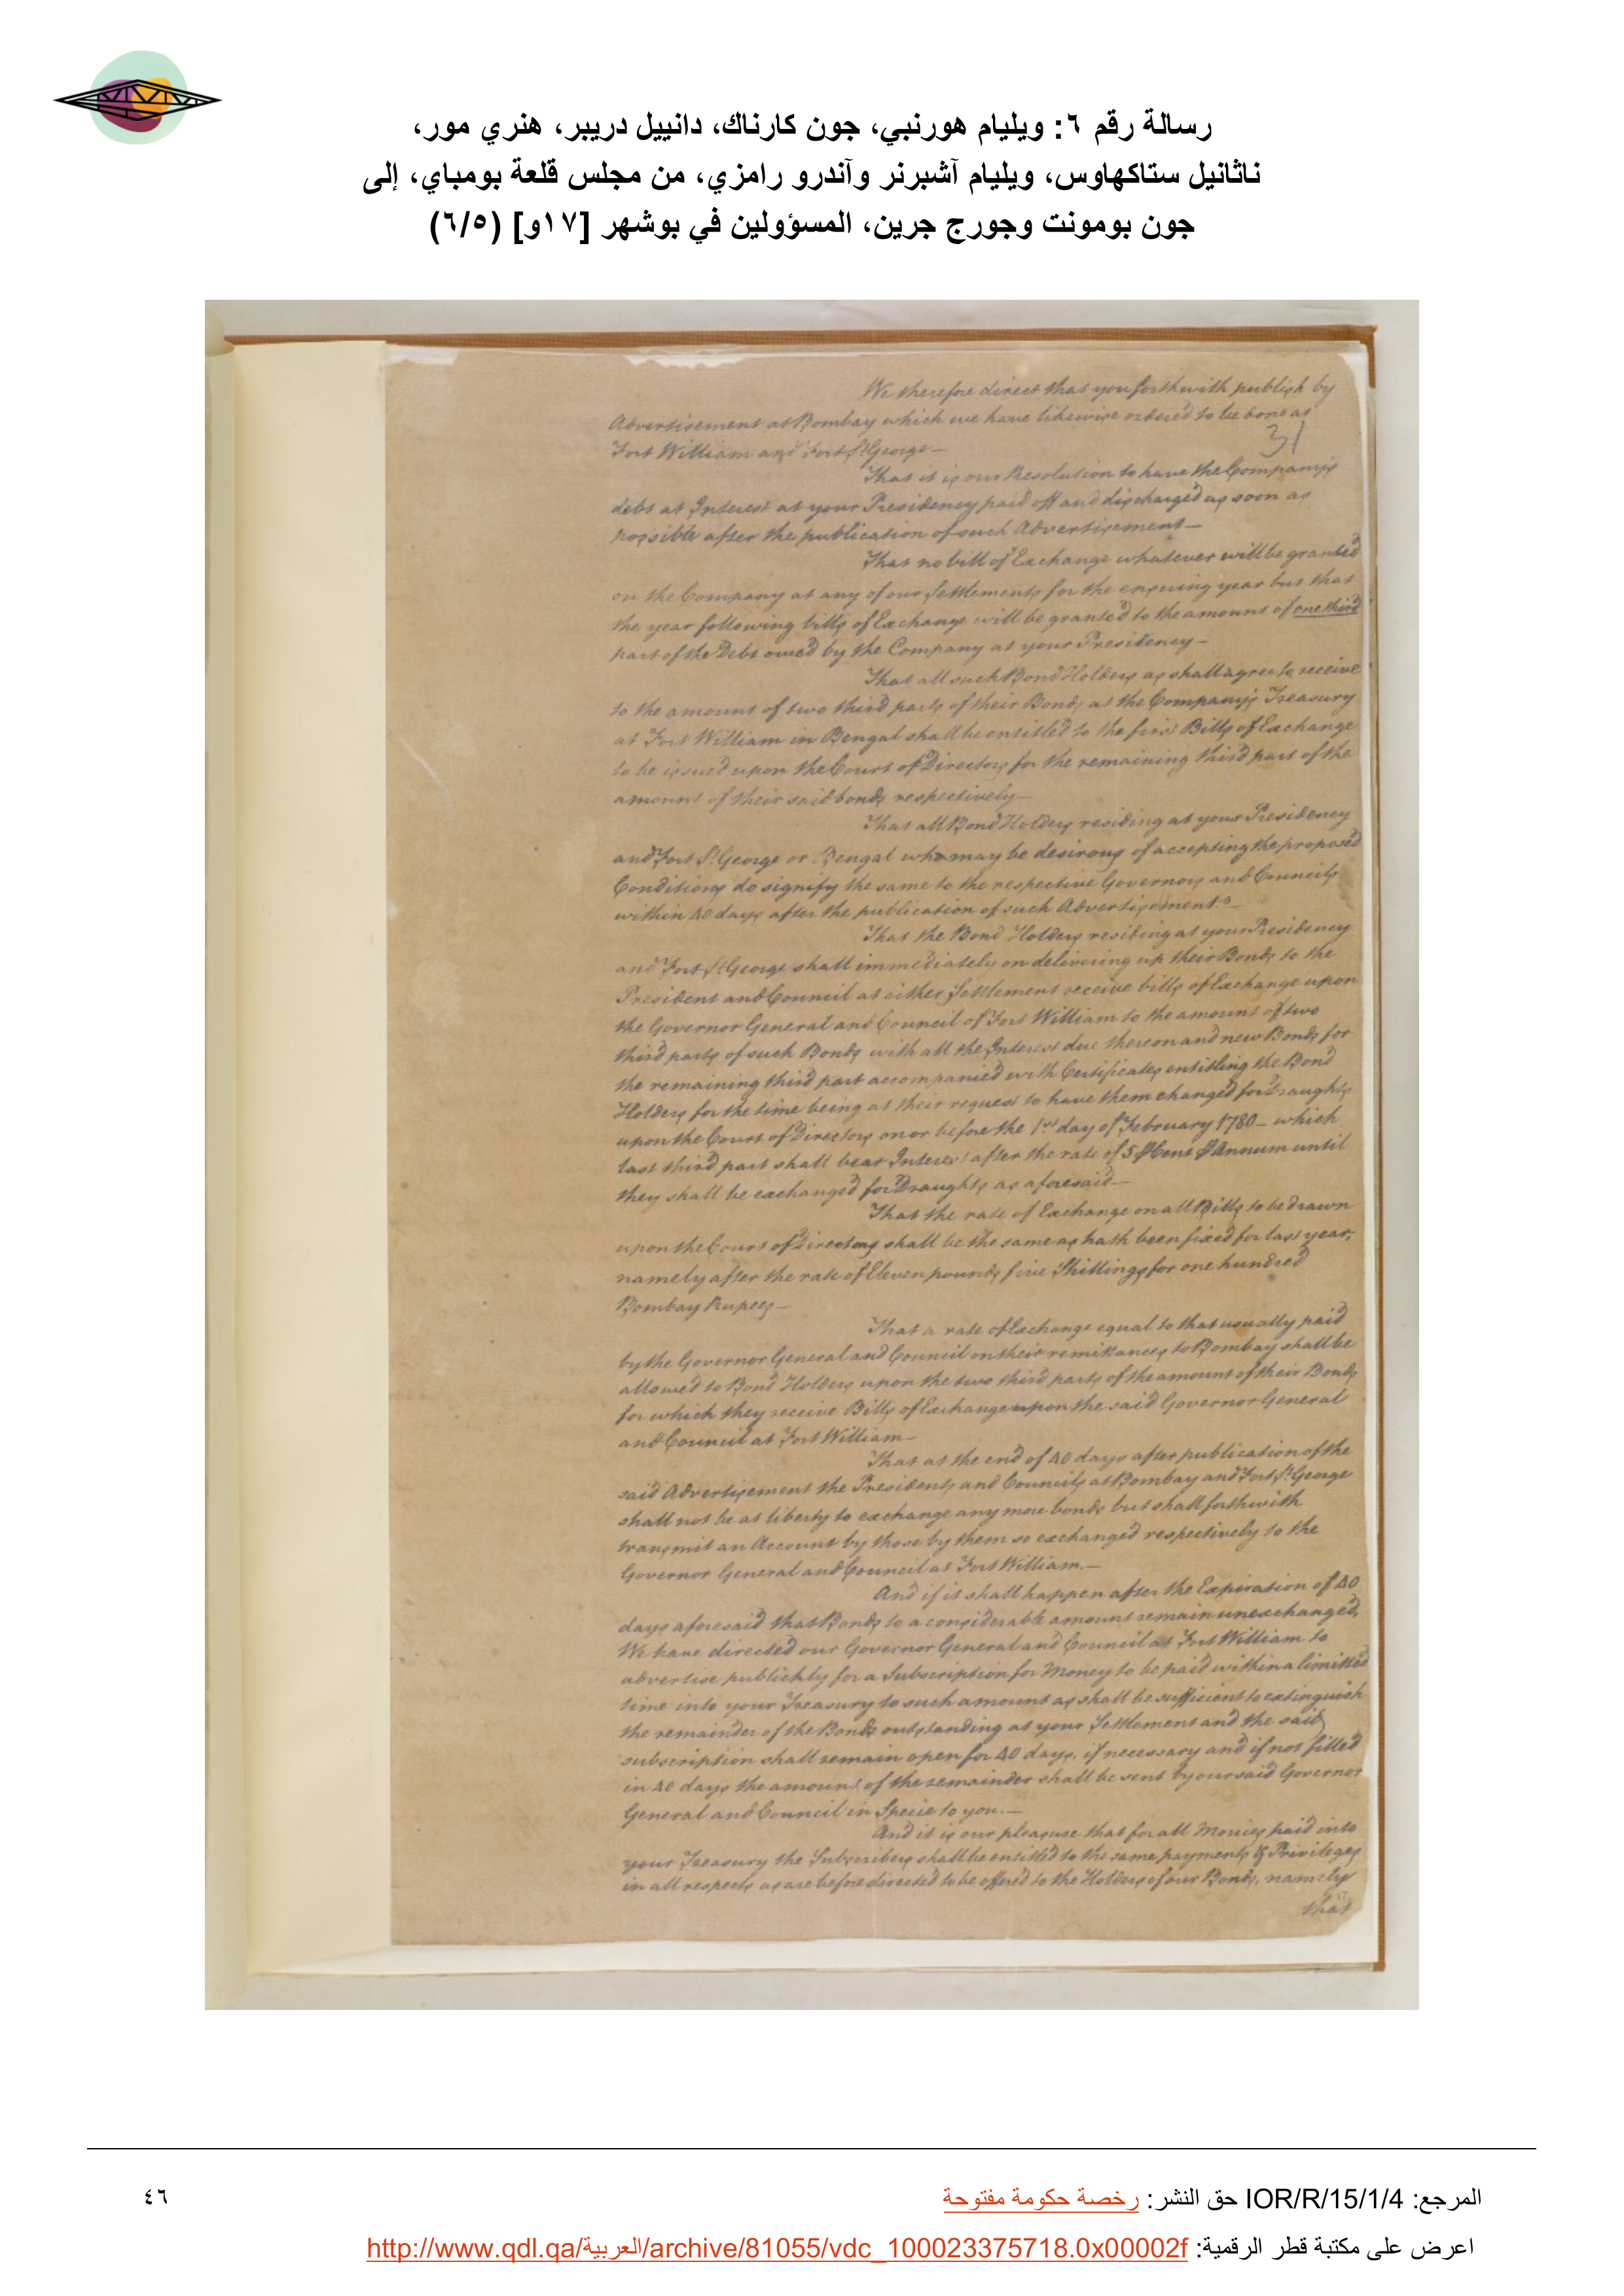 رسالة رقم ٦: ويليام هورنبي، جون كارناك، دانييل دريبر، هنري مور،
ناثانيل ستاكهاوس، ويليام آشبرنر وآندرو رامزي، من مجلس قلعة بومباي، إلى
جون بومونت وجورج جرين، المسؤولين في بوشهر [١٧و] (٦/٥)
We therefore direct that you forthwith publish by
Advertisement at Bombay which we have likewise ordered to be done at
31
Fort William and Fort St George—
That it is our Resolution to have the Company's
debt at Interest at your Presidency paid off and discharged as soon as
possible after the publication of such Advertisement—
That no bill of Exchange whatever will be granted
on the Company at any of our Settlements for the ensuing year but that
the year following bills of Exchange will be granted to the amount of one third
part of the Debt owed by the Company at your Presidency—
That all such Bond Holders as shall agree to receive
to the amount of two third parts of their Bonds at the Company's Treasury
at Fort William in Bengal shall be entitled to the first Bills of Exchange
to be issued upon the Court of Directors for the remaining third part of the
amount of their said bonds respectively—
That all Bond Holders residing at your Presidency
and Fort St George or Bengal who may be desirous of accepting the proposed
Conditions do signify the same to the respective Governors and Councils
within 40 days after the publication of such Advertisement.
That the Bond Holders residing at your Presidency
and Fort St George shall immediately on delivering up their Bonds to the
President and Council at either Settlement receive bills of Exchange upon
the Governor General and Council of Fort William to the amount of two
third parts of such Bonds with all the Interest due thereon and new Bonds for
the remaining third part accompanied with Certificates entitling the Bond
Holders for the time being at their request to have them changed for Draughts
upon the Court of Directors on or before the 1st day of February 1780— which
last third part shall bear Interest after the rate of 5 ₽ Cent ₽ Annum until
they shall be exchanged for Draughts as aforesaid—
That the rate of Exchange on all Bills to be drawn
upon the Court of Directors shall be the same as hath been fixed for last year,
namely after the rate of Eleven pounds five Shillings for one hundred
Bombay Rupees—
That a rate of Exchange equal to that usually paid
by the Governor General and Council on their remittances to Bombay shall be
allowed to Bond Holders upon the two third parts of the amount of their Bonds
for which they receive Bills of Exchange upon the said Governor General
and Council at Fort William—
That at the end of 40 days after publication of the
said Advertisement the Presidents and Councils at Bombay and Fort St George
shall not be at liberty to exchange any more bonds but shall forthwith
transmit an Account by those by them so exchanged respectively to the
Governor General and Council at Fort William.—
And if it shall happen after the Expiration of 40
days aforesaid that Bonds to a considerable amount remain unexchanged,
We have directed our Governor General and Council at Fort William to
advertise publickly for a Subscription for Money to be paid within a limitted
time into your Treasury to such amount as shall be sufficient to extinguish
the remainder of the Bonds outstanding at your Settlement and the said
subscription shall remain open for 40 days, if necessary and if not filled
in 40 days the amount of the remainder shall be sent by our said Governor
General and Council in Specie to you.—
And it is our pleasure that for all Monies paid into
your Treasury the Subscribers shall be entitled to the same payments & Privileges
in all respects as are before directed to be offered to the Holders of our Bonds, namely
that
المرجع: IOR/R/15/1/4 حق النشر: رخصة حكومة مفتوحة
٤٦
اعرض على مكتبة قطر الرقمية: http://www.qdl.qa/العربية/archive/81055/vdc_100023375718.0x00002f